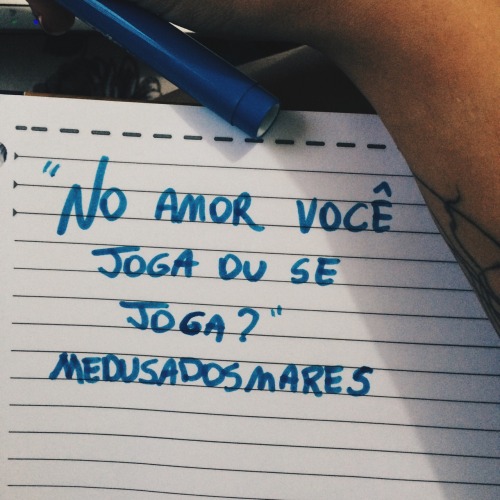 "NO AMOR VOCÊ
JOGA OU SE
JOGA?"
MEDUSADOSMARES